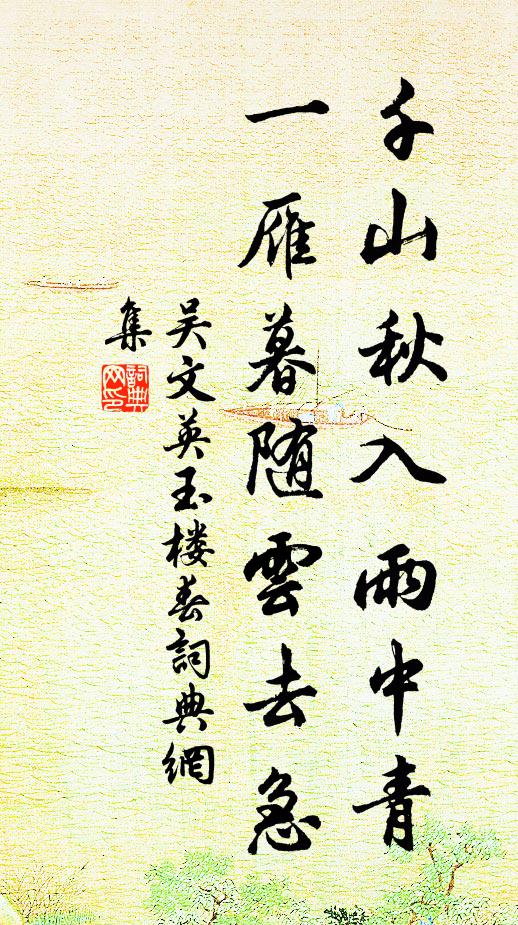 千山秋入雨中青
一雁暮随雲去急
吴文英玉楼春詞典網
集
詞典
网印